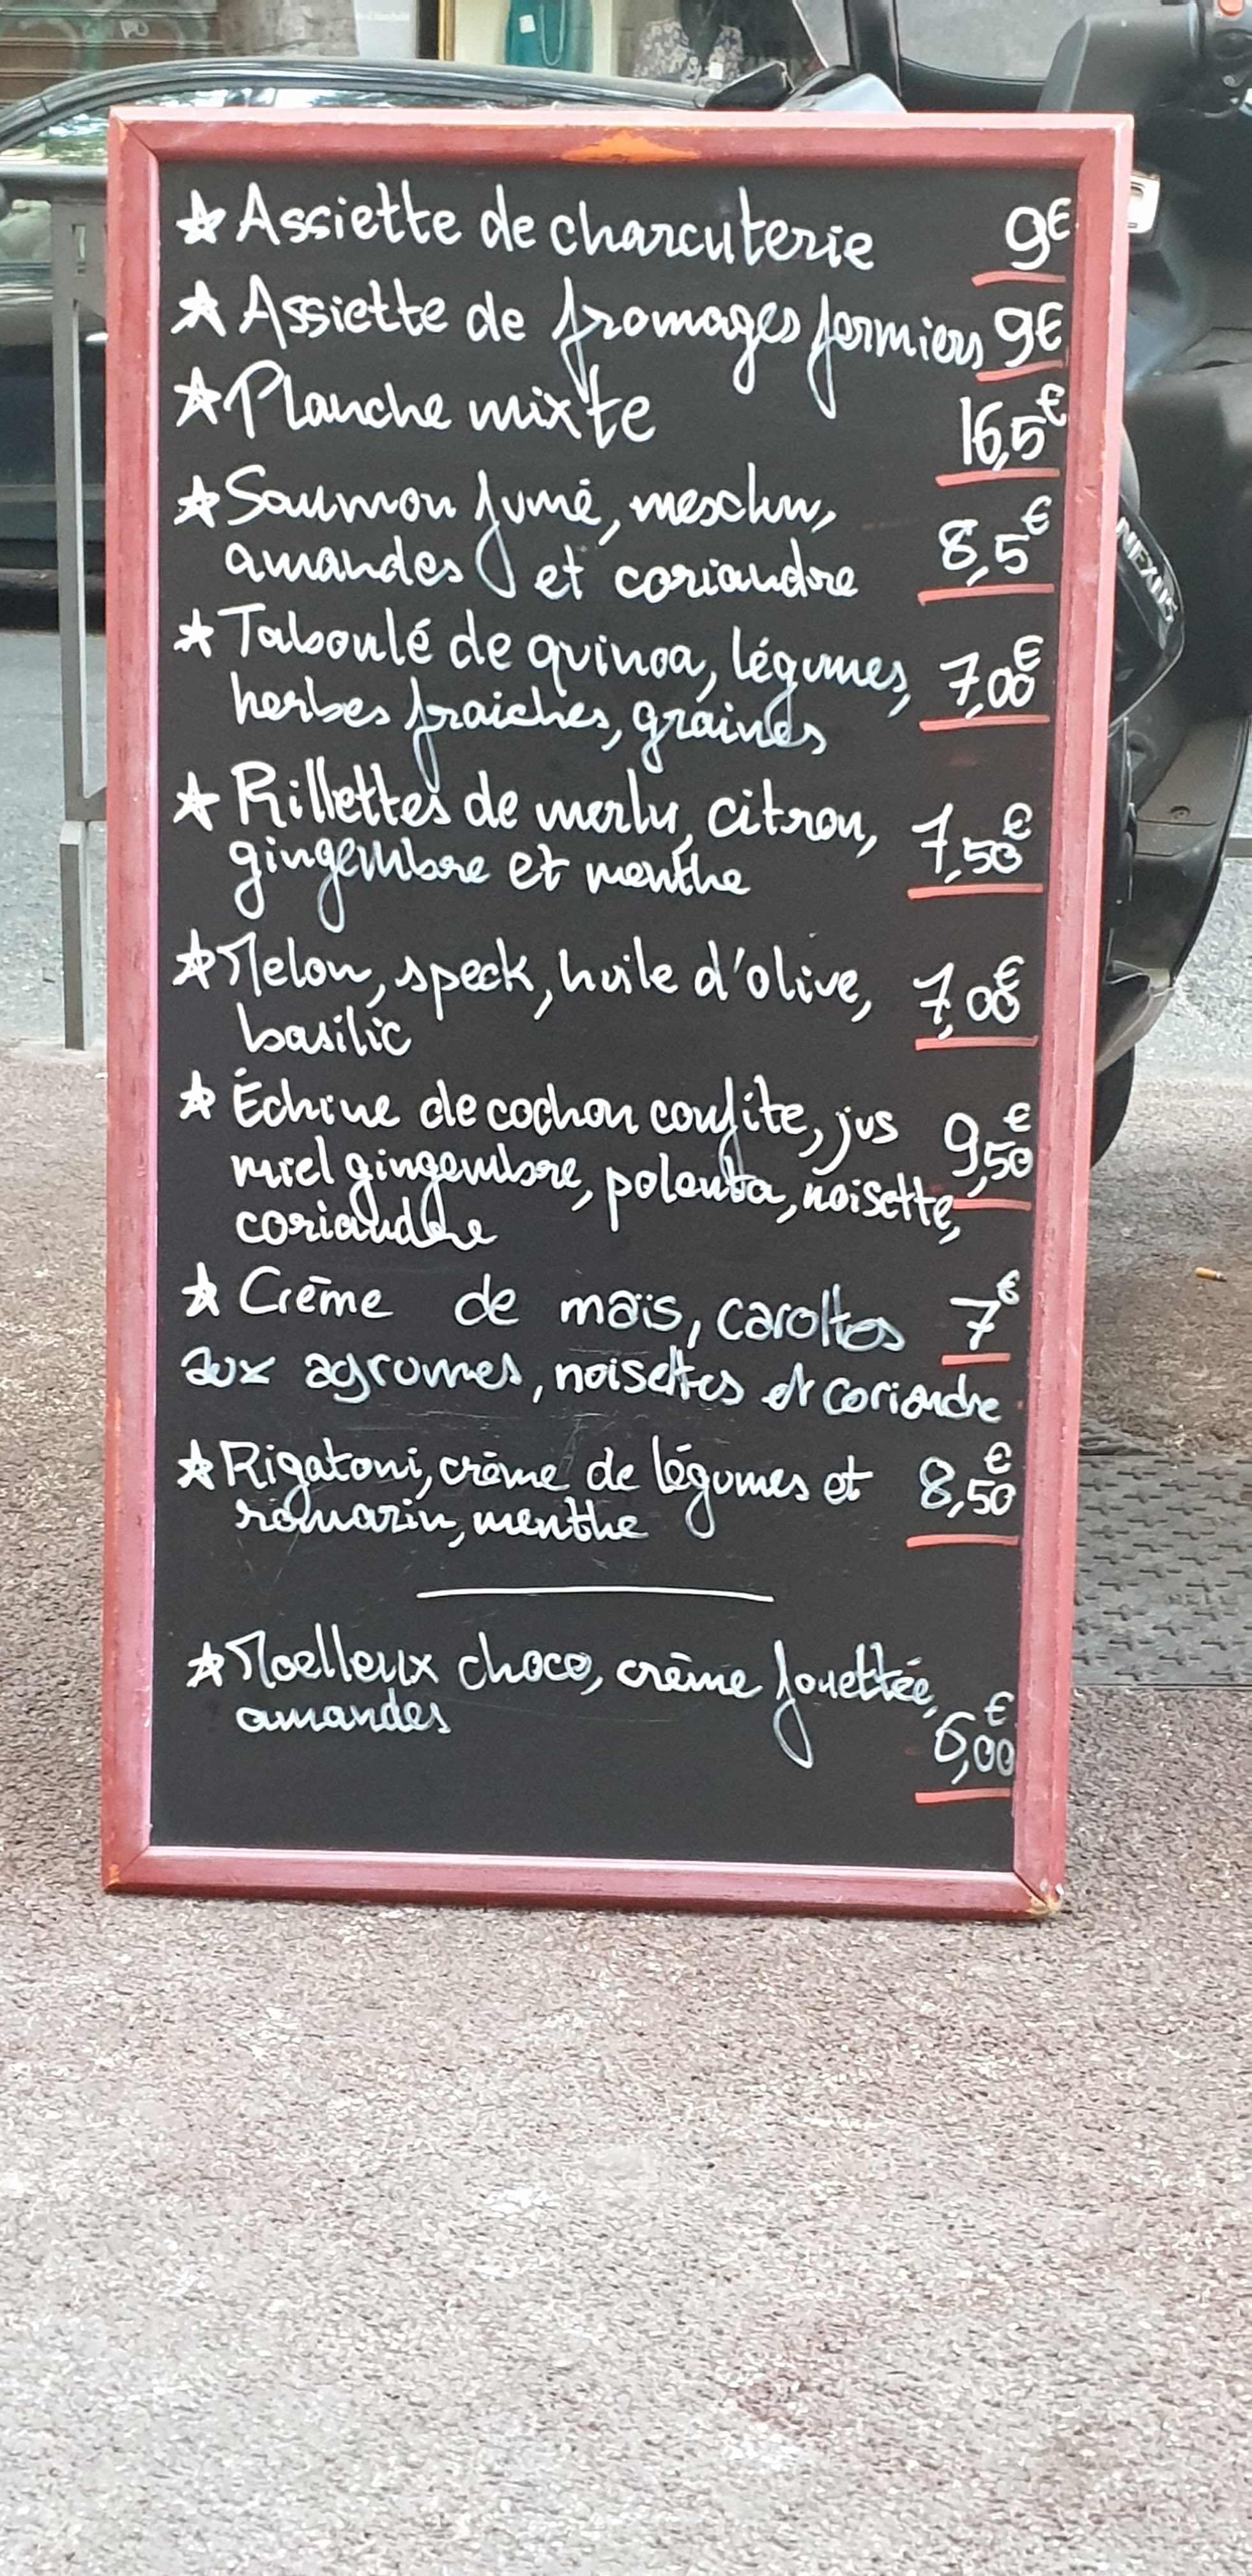 ☆ Assiette de charcuterie 9€
☆ Assiette de fromages fermiers 9€
☆ Planche mixte 16,5€
☆ Saumon fumé, mesclun,
amandes et coriandre 8,5€
☆ Taboulé de quinoa, légumes, 7,00€
herbes fraiches, graines
☆ Rillettes de merlu, citron, 7,50€
gingembre et menthe
☆ Melon, speck, huile d'olive, 7,00€
basilic
☆ Échine de cochon confite, jus 9,50€
miel gingembre, polenta, noisette,
coriandre
☆ Crème de maïs, carottes 7€
aux agrumes, noisettes et coriandre
☆ Rigatoni, crème de légumes et 8,50€
romarin, menthe
☆ Moelleux choco, crème fouettée,
amandes 6,00€
NEXUS